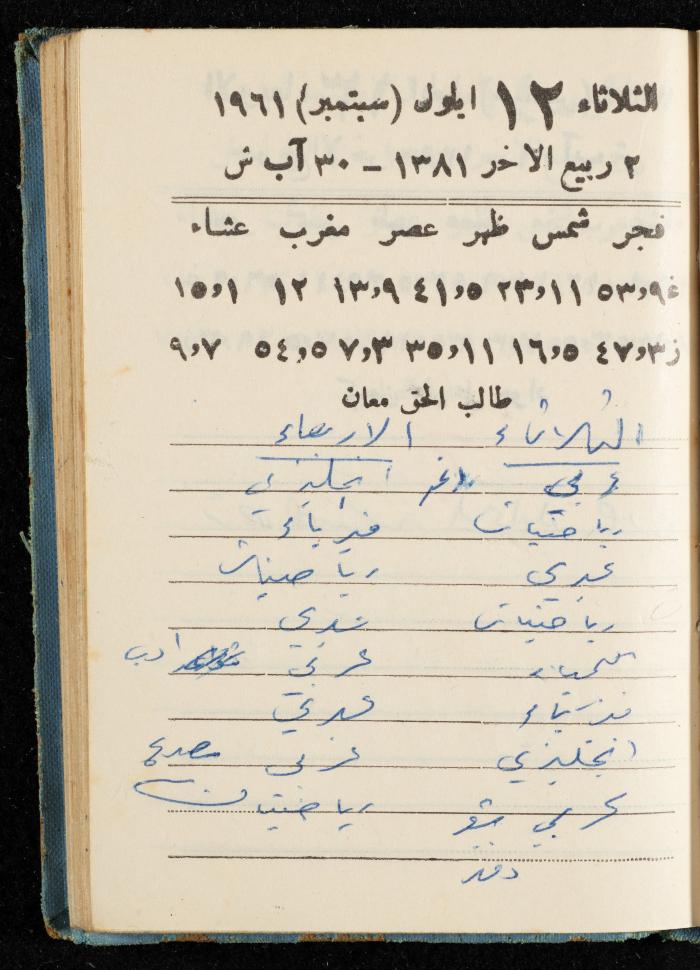 الثلاثاء ١٢ ايلول (سبتمبر) ١٩٦١
٢ ربيع الاخر ١٣٨١ – ٣٠ آب ش
فجر شمس ظهر عصر مغرب عشاء
غ٩و٥٣ ١١و٢٣ ٥و٤١ ٩و١٣ ١٢ ١و١٥
ز٣و٤٧ ٥و١٦ ١١و٣٥ ٣و٧ ٥و٥٤ ٧و٩
طالب الحق معان
الثلاثاء الاربعاء
عربي انجليزي
رياضيات فيزياء
عبري رياضيات
رياضيات عبري
كيمياء عربي ادب
فيزياء عبري
انجليزي عربي
عربي رياضيات
دفتر